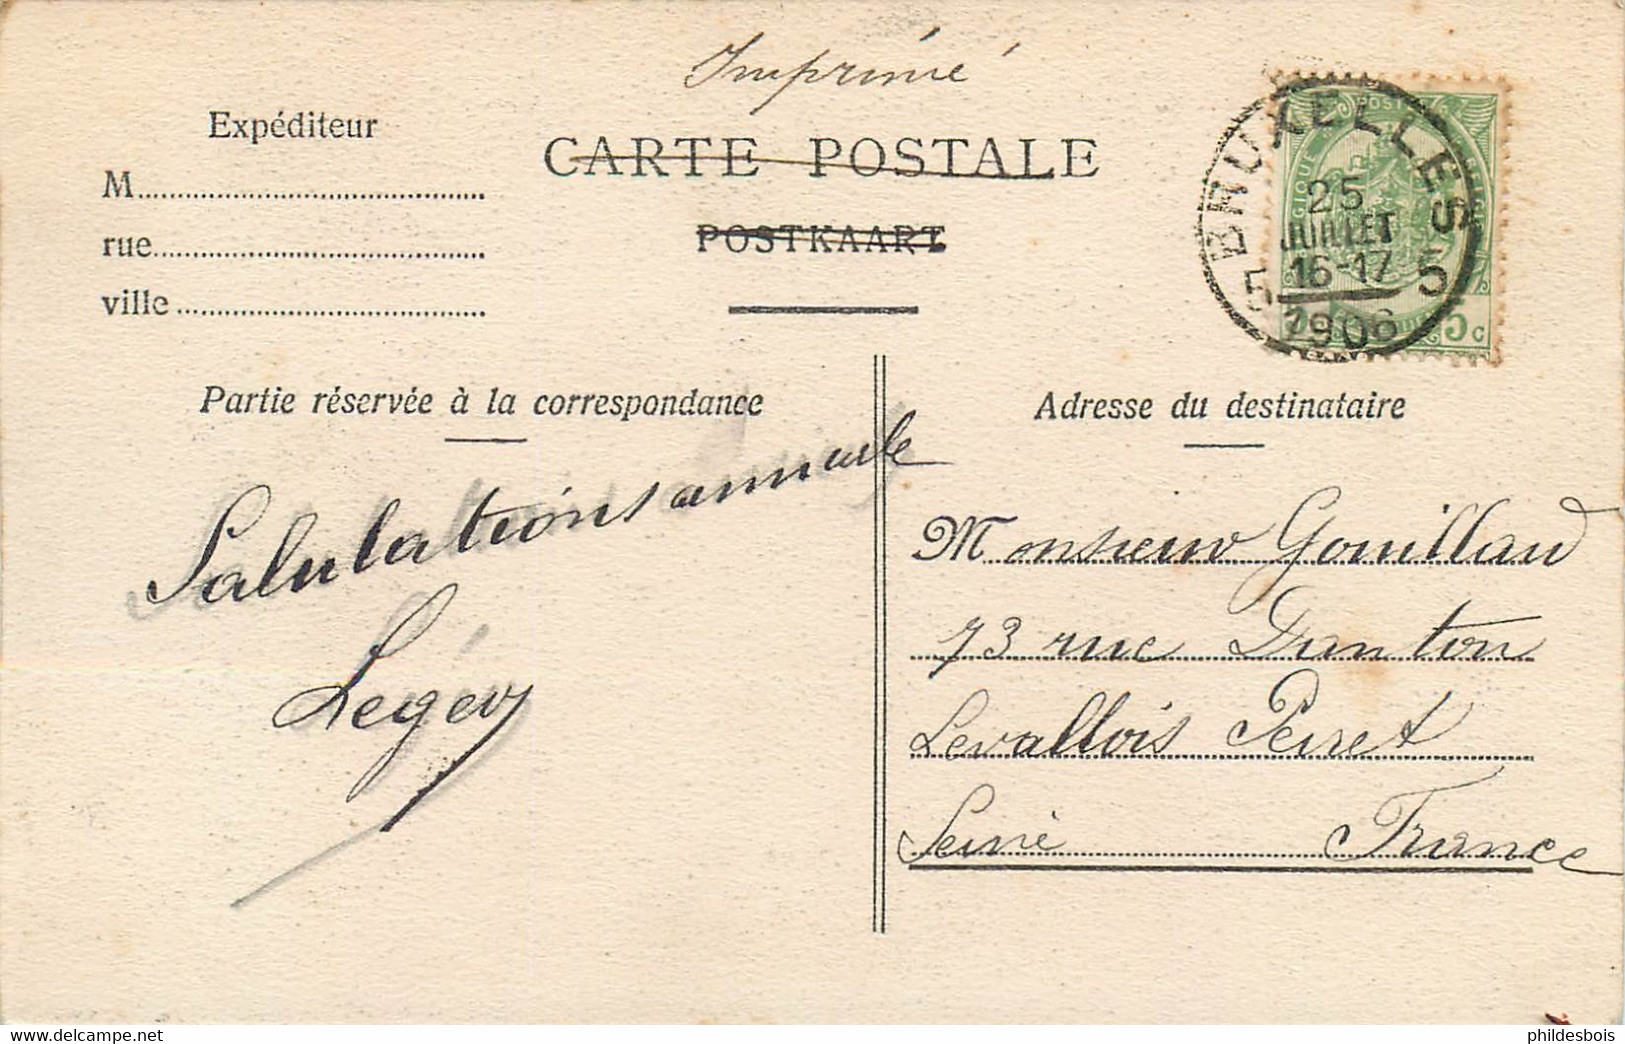 Imprimé
Expéditeur
CARTE POSTALE
M
POSTKAART
rue
ville
BRUXELLES
25
JUILLET
16-17
5 5
1906
5c
Partie réservée à la correspondance
Adresse du destinataire
Salutations
Légey
Monsieur Gouilland
73 rue Danton
Levallois Perret
Seine France
delcampe.net
phildesbois